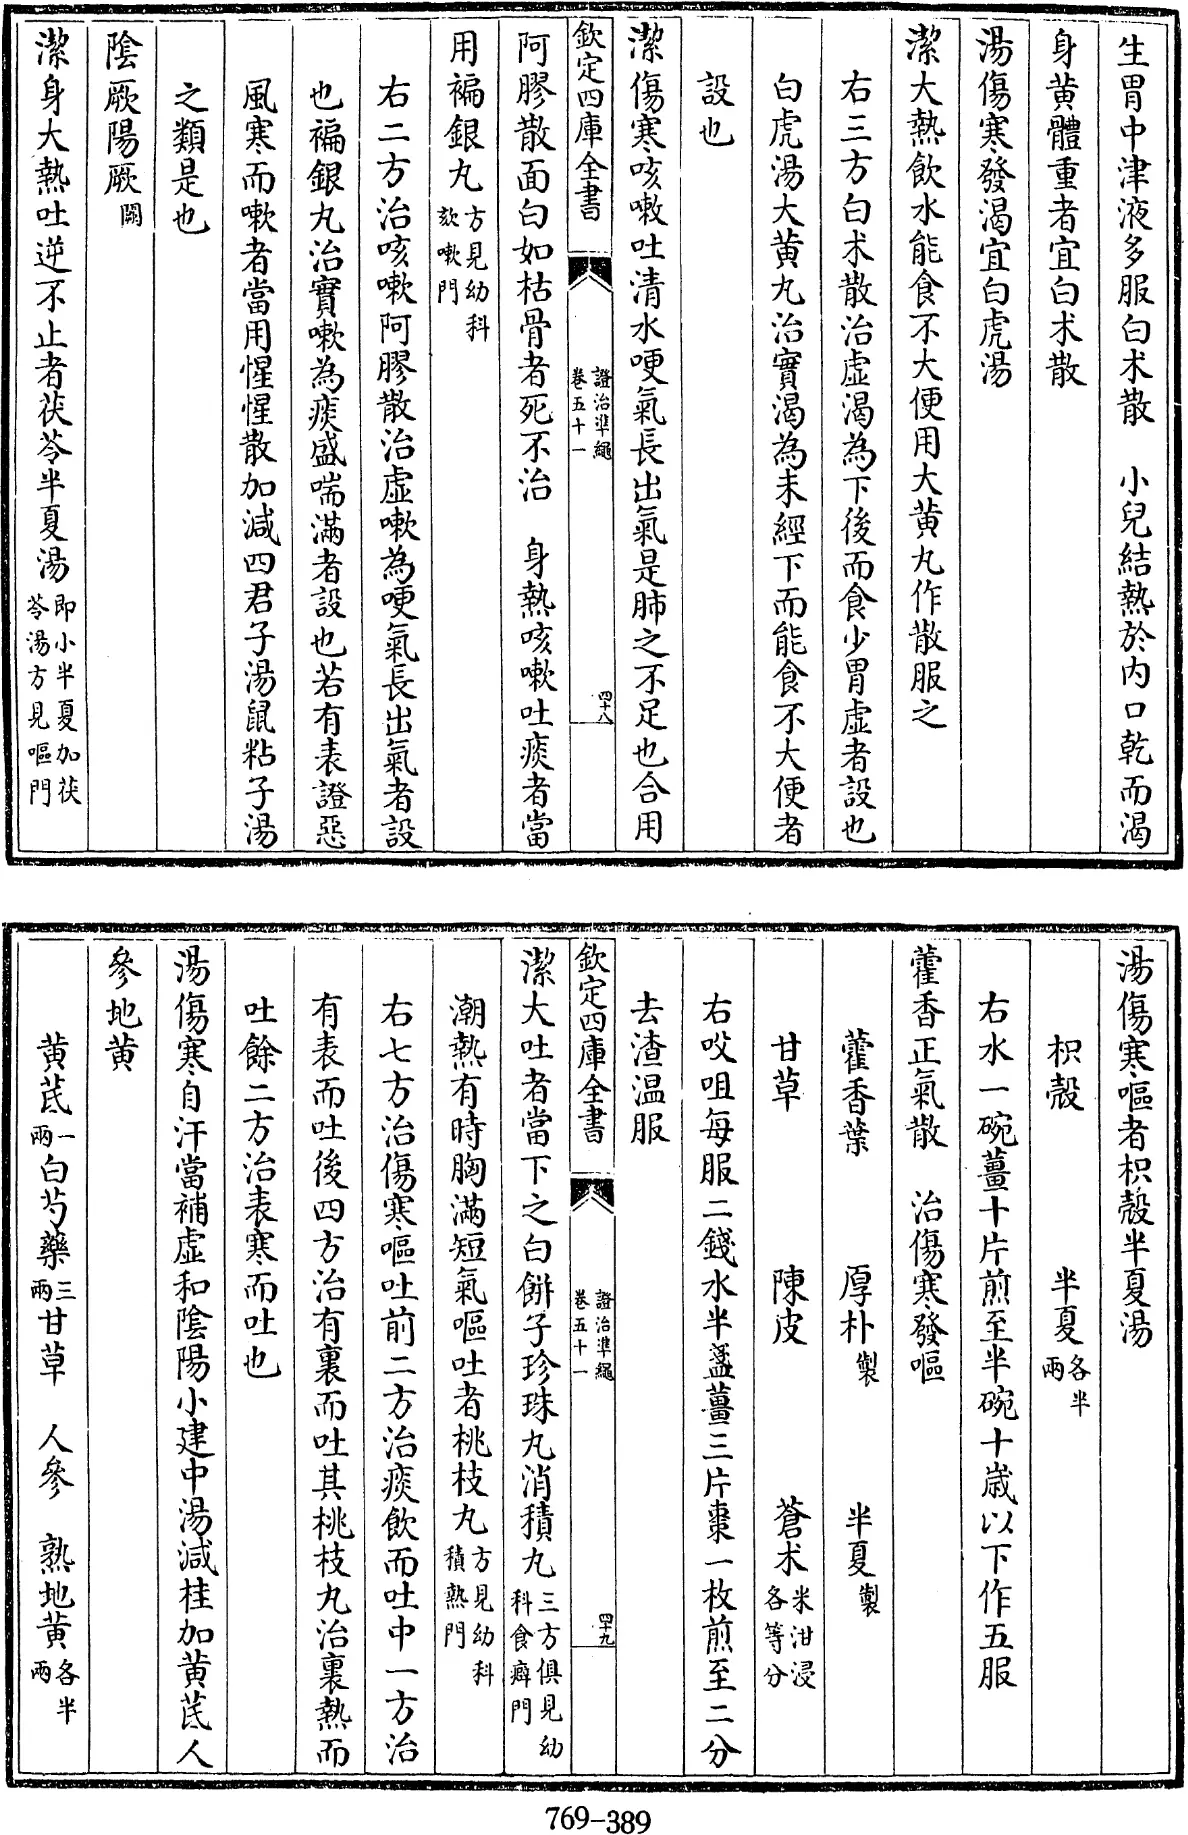 生胃中津液多服白术散　小兒結熱於内口乾而渴
身黄體重者宜白术散
湯傷寒發渴宜白虎湯
潔大熱飲水能食不大便用大黄丸作散服之
右三方白术散治虚渴為下後而食少胃虚者設也
白虎湯大黄丸治實渴為未經下而能食不大便者
設也
潔傷寒咳嗽吐清水哽氣長出氣是肺之不足也合用
欽定四庫全書
證治準繩
卷五十一
四十八
阿膠散面白如枯骨者死不治　身熱咳嗽吐痰者當
用褊銀丸方見幼科
欬嗽門
右二方治咳嗽阿膠散治虚嗽為哽氣長出氣者設
也褊銀丸治實嗽為痰盛喘滿者設也若有表證惡
風寒而嗽者當用惺惺散加减四君子湯鼠粘子湯
之類是也
陰厥陽厥闕
潔身大熱吐逆不止者茯苓半夏湯即小半夏加茯
苓湯方見嘔門
湯傷寒嘔者枳殻半夏湯
枳殻　半夏各半
兩
右水一碗薑十片煎至半碗十歲以下作五服
藿香正氣散　治傷寒發嘔
藿香葉　厚朴製　半夏製
甘草　陳皮　蒼术米泔浸
各等分
右㕮咀每服二錢水半盞薑三片棗一枚煎至二分
去渣温服
欽定四庫全書
證治準繩
卷五十一
四十九
潔大吐者當下之白餅子珍珠丸消積丸三方俱見幼
科食癖門
潮熱有時胸滿短氣嘔吐者桃枝丸方見幼科
積熱門
右七方治傷寒嘔吐前二方治痰飲而吐中一方治
有表而吐後四方治有裏而吐其桃枝丸治裏熱而
吐餘二方治表寒而吐也
湯傷寒自汗當補虚和陰陽小建中湯减桂加黄芪人
參地黄
黄芪一
兩白芍藥三
兩甘草　人參　熟地黄各半
兩
769-389